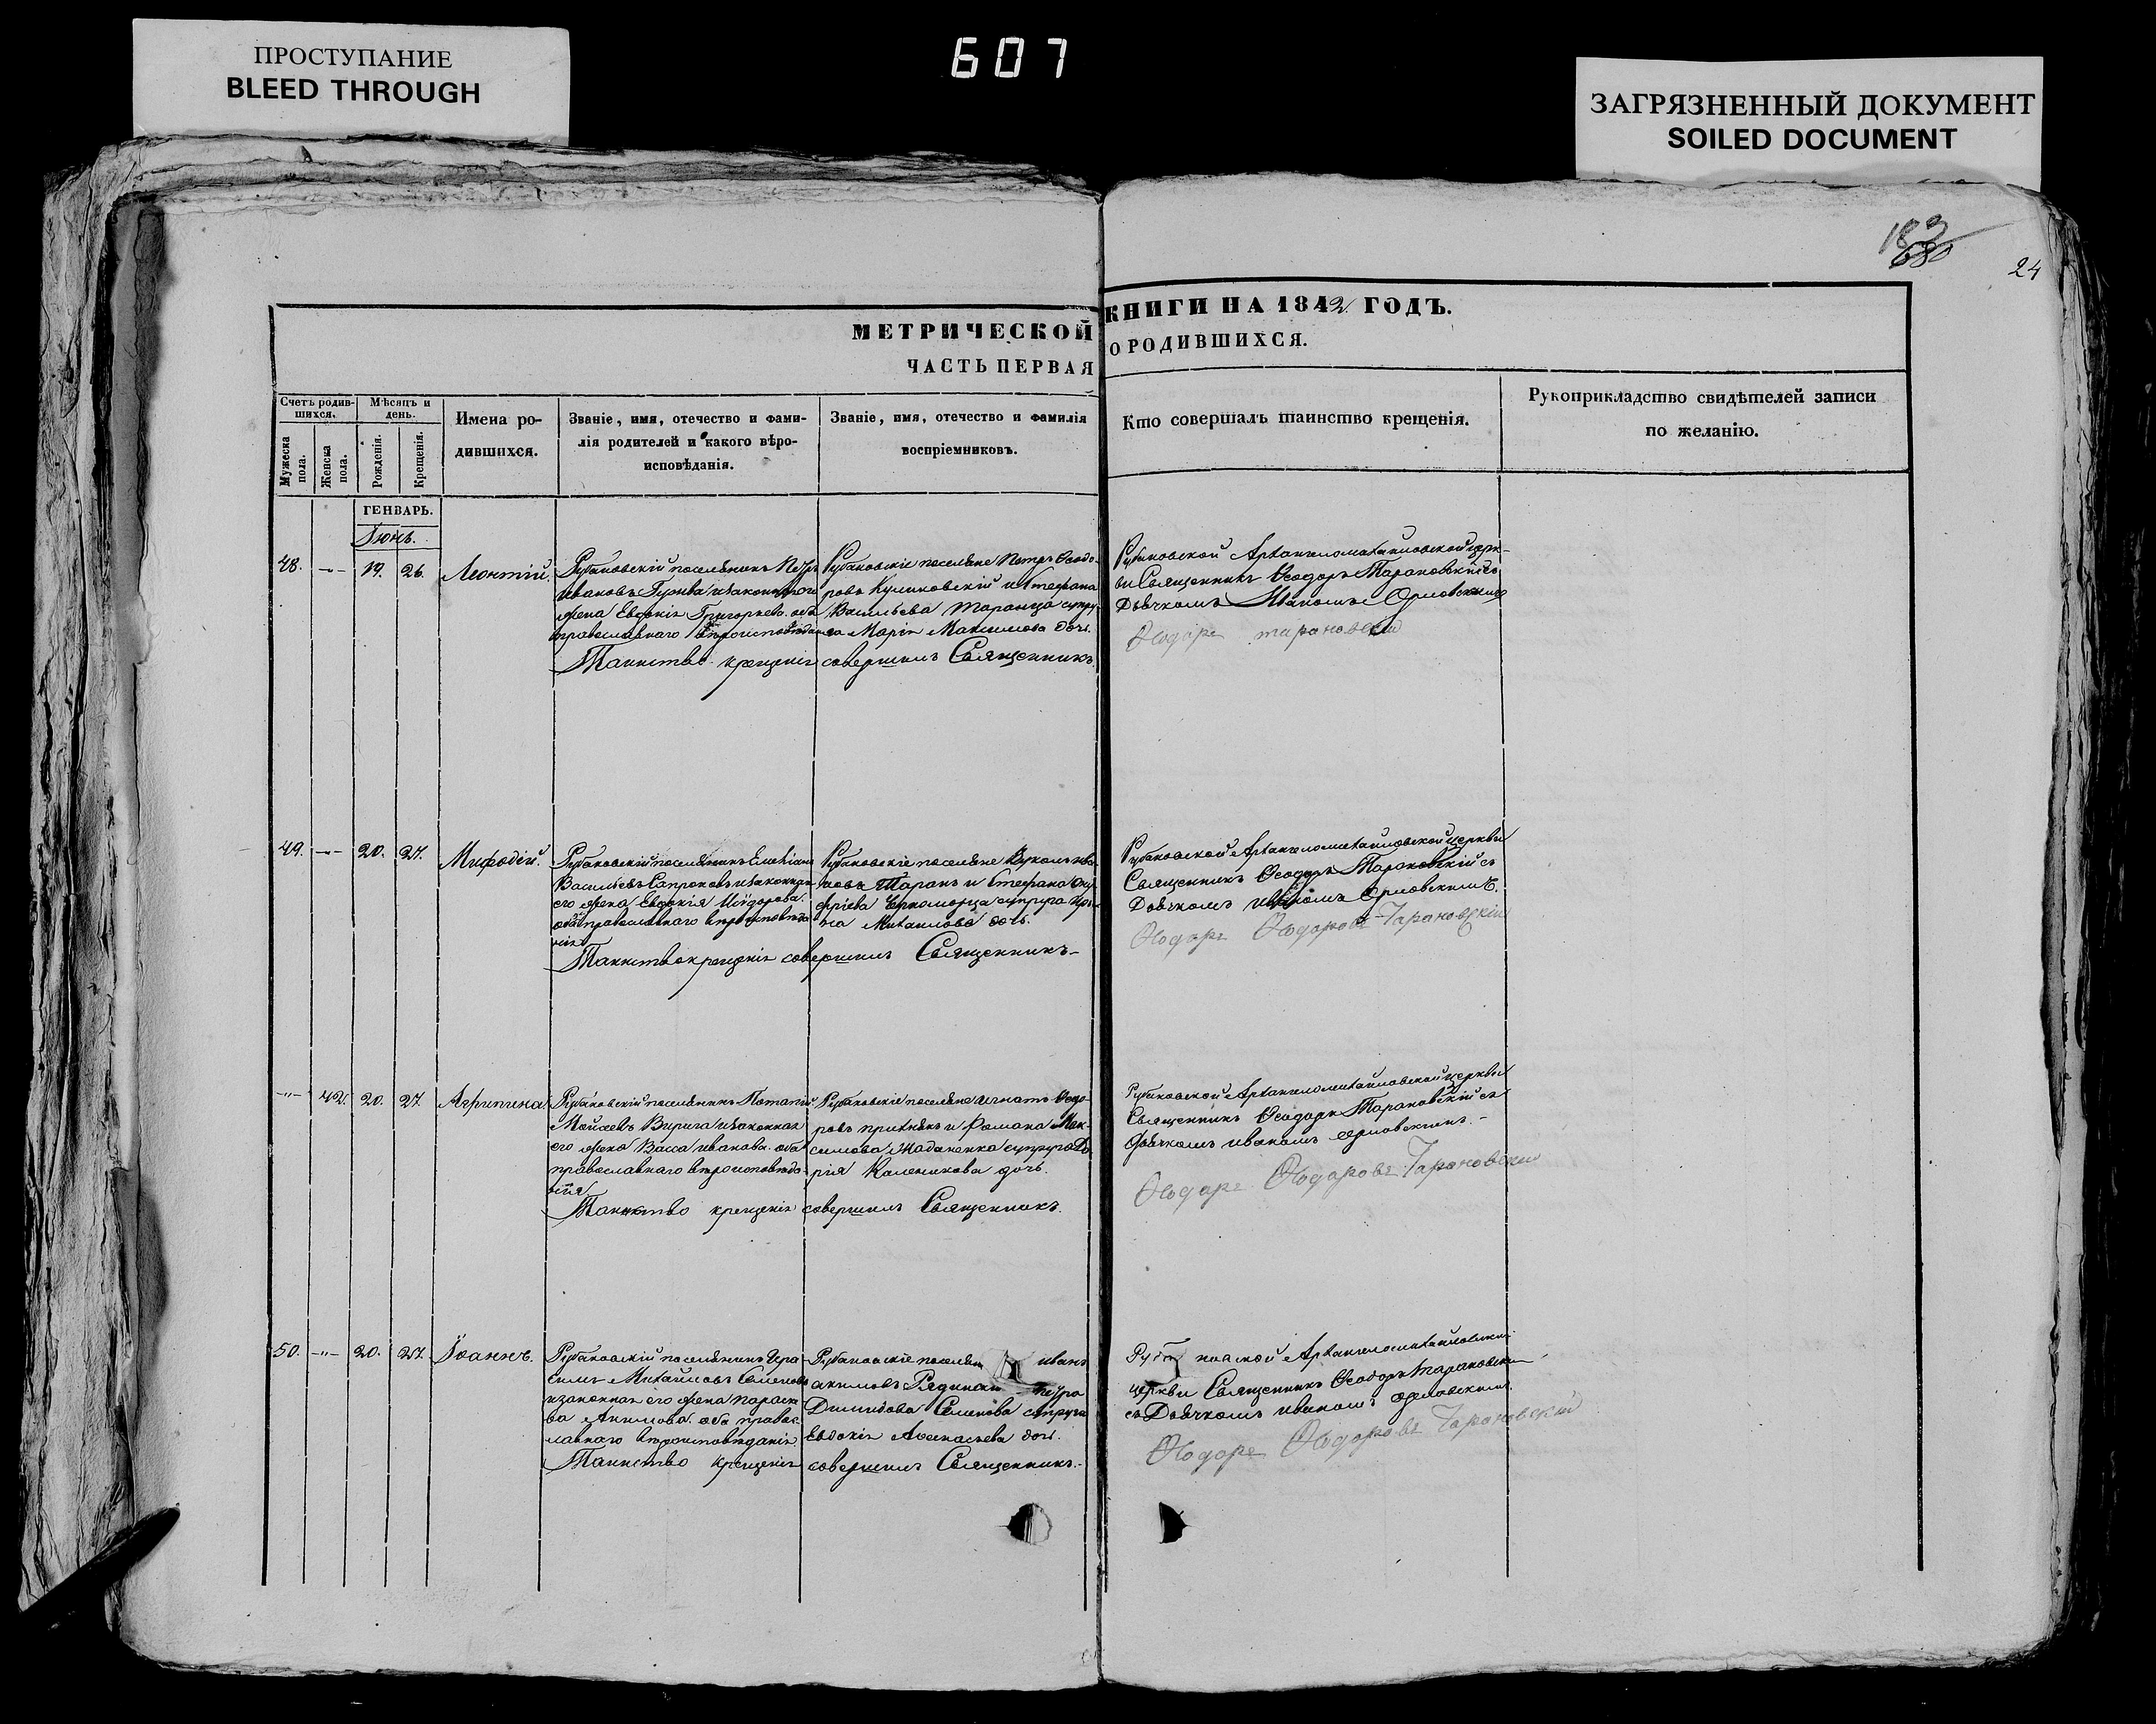 ПРОСТУПАНИЕ
BLEED THROUGH
607
ЗАГРЯЗНЕННЫЙ ДОКУМЕНТ
SOILED DOCUMENT
24
МЕТРИЧЕСКОЙ КНИГИ НА 1842 ГОДЪ.
ЧАСТЬ ПЕРВАЯ О РОДИВШИХСЯ.
Счетъ родив-
шихся.
Мужеска
пола.
Женска
пола.
Мѣсяцъ и
день.
Рожденія.
Крещенія.
Имена ро-
дившихся.
Званіе, имя, отечество и фами-
лія родителей и какого вѣро-
исповѣданія.
Званіе, имя, отечество и фамилія
воспріемниковъ.
Кто совершалъ таинство крещенія.
Рукоприкладство свидѣтелей записи
по желанію.
ГЕНВАРЬ.
Іюнь.
48. -"- 19. 26. Леонтій
Рубановскій поселянинъ Петръ
Ивановъ и законная его
жена Евдокія Григорьева оба
православнаго вѣроисповѣданія
Рубановскіе поселяне Петръ Ѳеодо-
ровъ Куликовскій и Стефана
Васильева Таранца супру-
га Марія Максимова дочь.
Таинство крещенія совершилъ Священникъ
Рубановской Архангеломихайловской церк-
ви Священникъ Ѳеодоръ Тарановскій съ
Дьячкомъ Иваномъ Орловскимъ
Ѳиодоръ тарановский
49. -"- 20. 27. Мифодій.
Рубановскій поселянинъ Емельянъ
Васильевъ Сапроновъ и законная
его жена Евдокія Исидорова
оба православнаго вѣроисповѣда-
нія
Рубановскіе поселяне Вуколъ Ива-
новъ Таранъ и Стефана
Черноморца супруга
Михаилова дочь.
Таинство крещенія совершилъ Священникъ-
Рубановской Архангеломихайловской церкви
Священникъ Ѳеодоръ Тарановскій съ
Дьячкомъ Иваномъ Орловскимъ.
Ѳиодоръ Ѳиодоровъ Тарановскій
-"- 42. 20. 27. Агрипина
Рубановскій поселянинъ Потапій
Моисеевъ Вирига и законная
его жена Васса Иванова оба
православнаго вѣроисповѣда-
нія
Рубановскіе поселяне Игнатъ Ѳеодо-
ровъ и Романа Мак-
симова Жаданенка супруга Да-
рія Каленикова дочь.
Таинство крещенія совершилъ Священникъ.
Рубановской Архангеломихайловской церкви
Священникъ Ѳеодоръ Тарановскій съ
Дьячкомъ Иваномъ Орловскимъ.-
Ѳиодоръ Ѳиодоровъ Тарановский
50. -"- 20. 27. Іоаннъ.
Рубановскій поселянинъ Гера-
симъ Михайловъ Семеновъ
и законная его жена Параске-
ва Акимова оба правос-
лавнаго вѣроисповѣданія
Рубановскіе поселяне Иванъ
Акимовъ Петра
Димидова Семенова супруга
Евдокія Аѳанасьева дочь.
Таинство крещенія совершилъ Священникъ.-
Архангеломихайловской
церкви Священникъ Ѳеодоръ Тарановскій
съ Дьячкомъ Иваномъ Орловскимъ.
Ѳиодоръ Ѳиодоровъ Тарановский